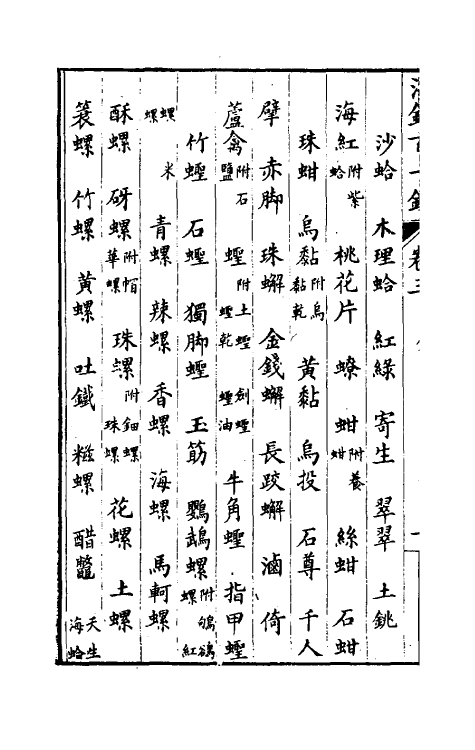 海錯百一錄 卷三
沙蛤 木理蛤 紅綠 寄生 翠翠 土銚
海紅 附紫蛤 桃花片 蟟 蚶 附養蚶 絲蚶 石蚶
珠蚶 烏黏 附烏黏乾 黃黏 烏投 石尊 千人
擘 赤脚 珠蠏 金錢蠏 長跤蠏 滷 倚
蘆禽 附石鹽 蟶 附土蟶 劍蟶 蟶乾 蟶油 牛角蟶 指甲蟶
竹蟶 石蟶 獨脚蟶 玉筯 鸚鵡螺 附鳲鵒螺紅
螺 米螺 青螺 辣螺 香螺 海螺 馬軻螺
酥螺 砑螺 附㡌華螺 珠螺 附鈿螺 珠螺 花螺 土螺
簑螺 竹螺 黃螺 吐鐵 糍螺 醋鼈 天生海蛤